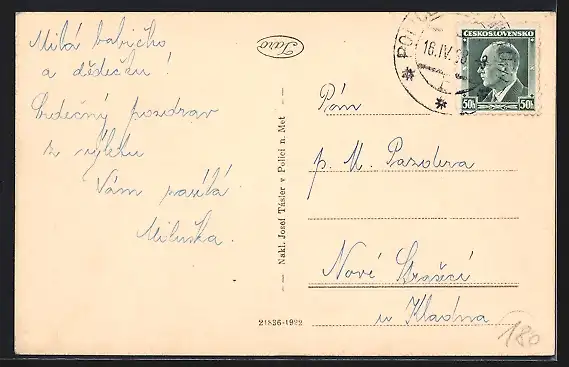 Milá babičko
a dědečku!
Srdečný pozdrav
z výletu
Vám zasílá
Miluška.
Faro
Nakl. Josef Tásler v Polici n. Met
21836-1922
ČESKOSLOVENSKO
50h 50h
POLICE
16.IV.38
Pán
p. M. Pazdera
Nové Strašecí
u Kladna
180